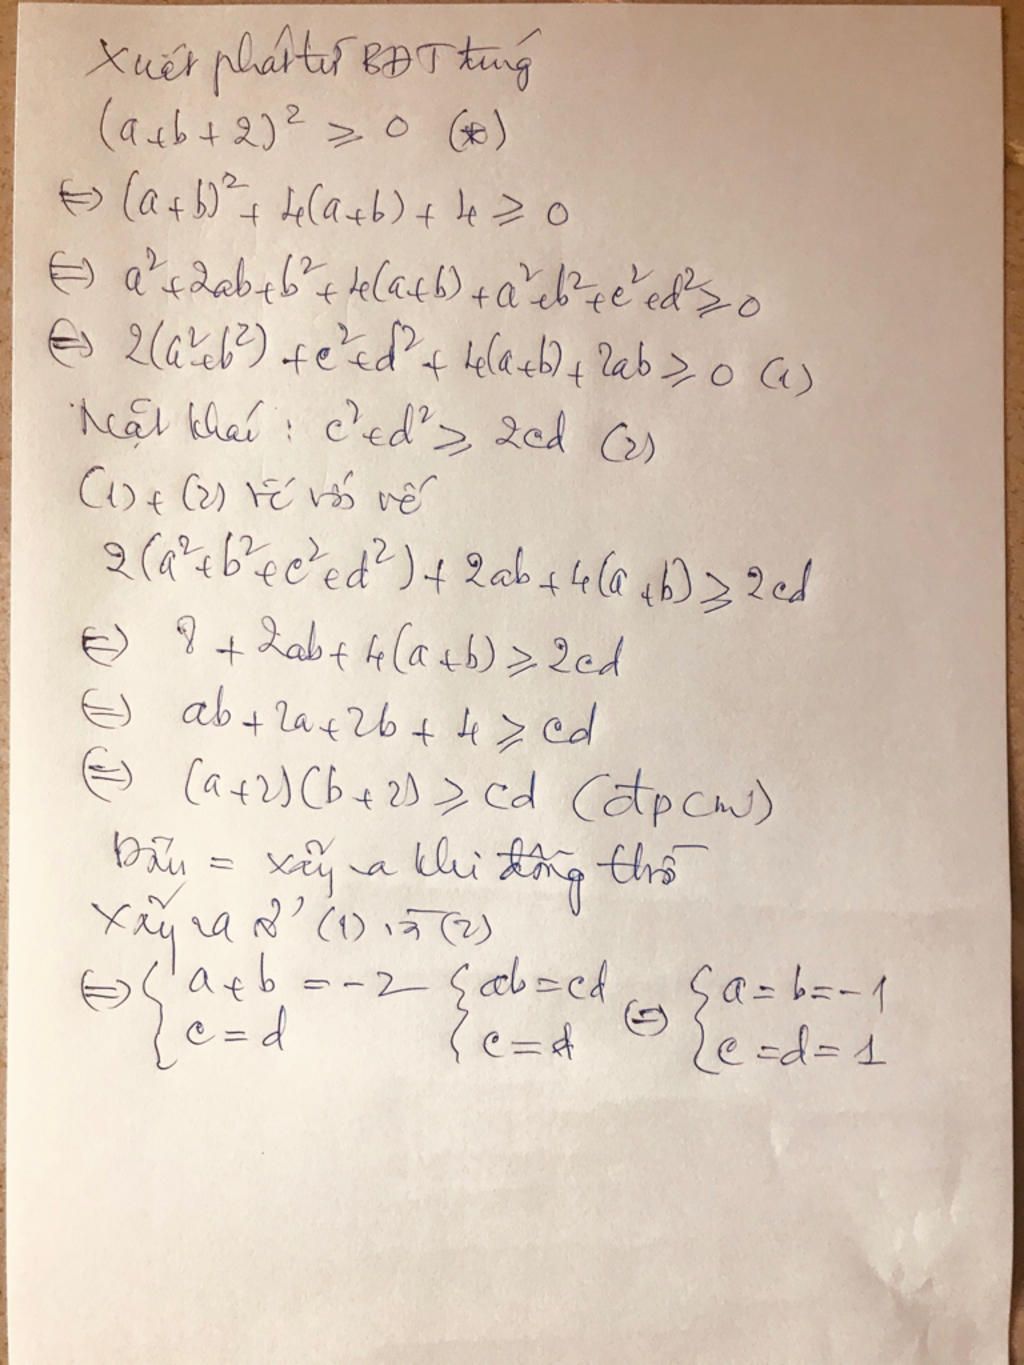 Xuất phát từ BĐT đúng
(a+b+2)² ≥ 0 (*)
⇔ (a+b)² + 4(a+b) + 4 ≥ 0
⇔ a²+2ab+b²+4(a+b)+a²+b²+c²+d² ≥ 0
⇔ 2(a²+b²) + c²+d² + 4(a+b) + 2ab ≥ 0 (1)
Mặt khác : c²+d² ≥ 2cd (2)
(1) + (2) vế với vế
2(a²+b²+c²+d²) + 2ab + 4(a+b) ≥ 2cd
⇔ 8 + 2ab + 4(a+b) ≥ 2cd
⇔ ab + 2a + 2b + 4 ≥ cd
⇔ (a+2)(b+2) ≥ cd (đpcm)
Dấu = xảy ra khi đồng thời
xảy ra ở (1) và (2)
⇔ { a+b = -2 { ab = cd ⇔ { a = b = -1
c = d c = d c = d = 1